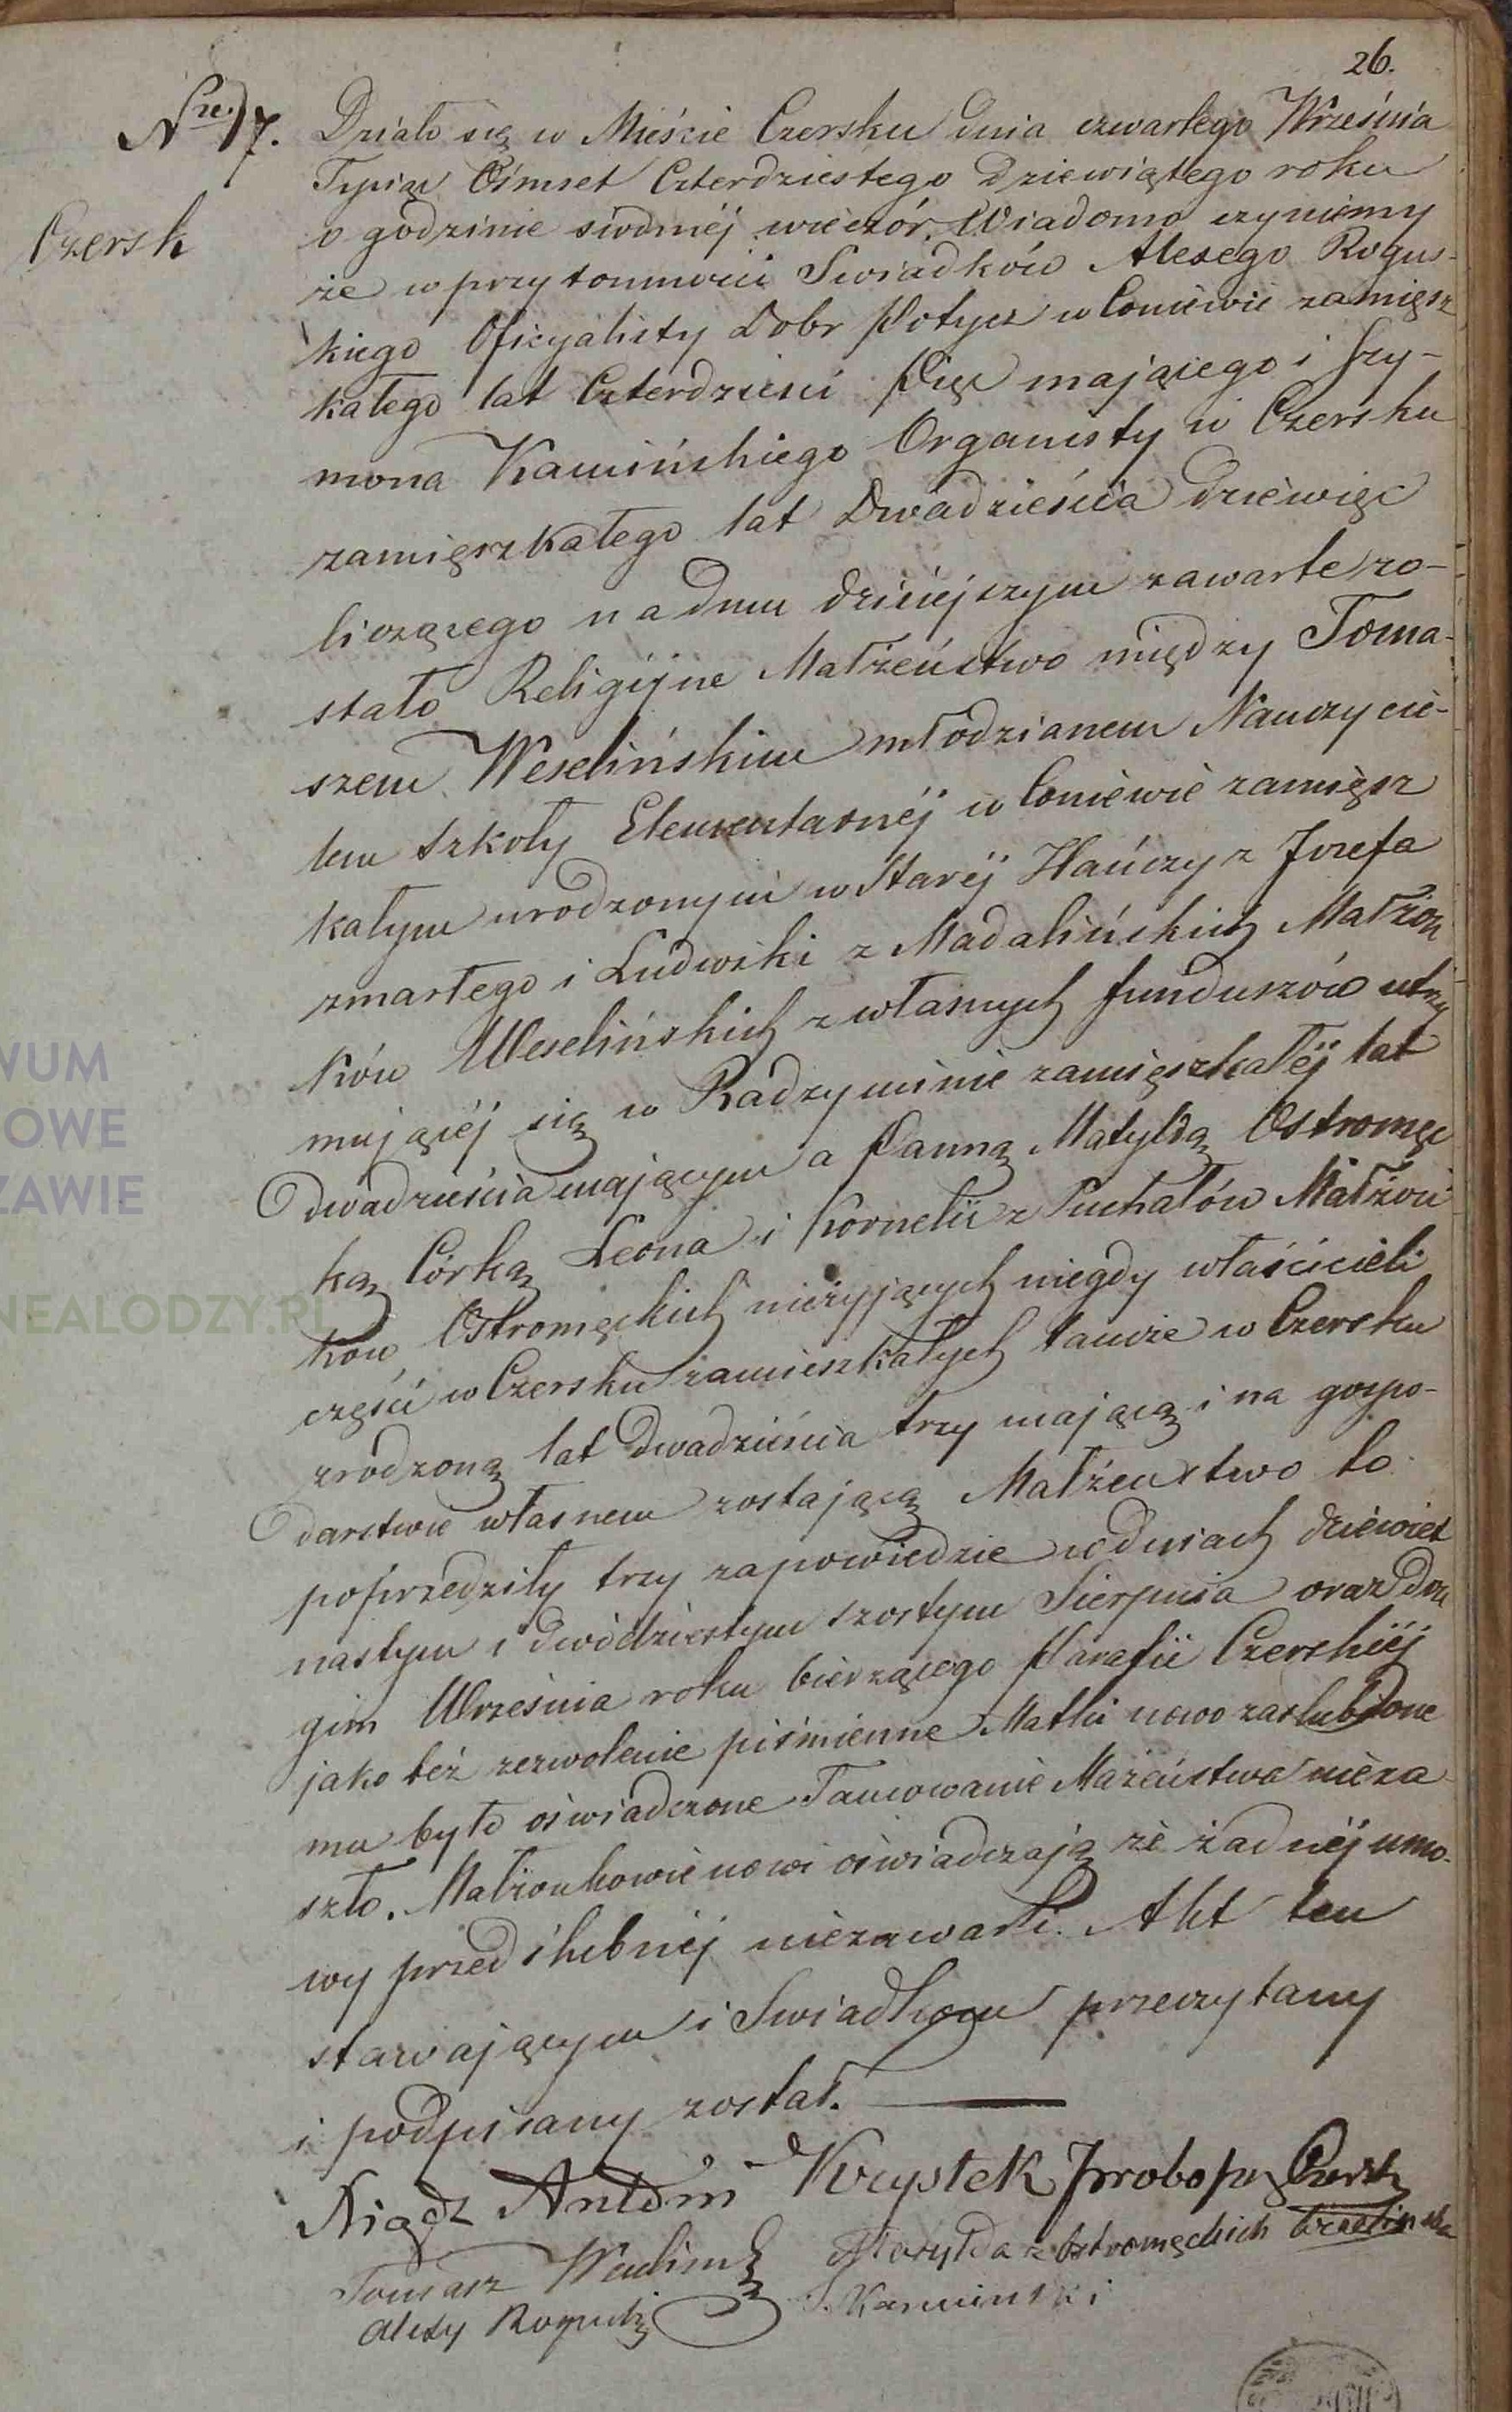 26.
Nro 17.
Czersk
Działo się w Mieście Czersku dnia czwartego Września
Tysiąc Ośmset Czterdziestego Dziewiątego roku
o godzinie siódméj wieczór. Wiadomo czyniemy
że w przytomności Swiadków Alexego Rogus-
kiego Oficyalisty Dobr Potycz w Coniewie zamięsz
kałego lat Czterdzieści Pięć mającego i Szy-
mona Kamińskiego Organisty w Czersku
zamięszkałego lat Dwadzieścia dziewięć
liczącego na dniu dzisiejszym zawarte zo-
stało Religijne Małżeństwo między Toma-
szem Weselińskim młodzianem Nauczycie-
lem szkoły Elementarnéj w Coniewie zamięsz
kałym urodzonym w Staréj Hańczy z Jozefa
zmarłego i Ludwiki z Madalińskich Małżon
ków Weselińskich z własnych funduszów utrzy
mującéj się w Radzyminie zamięszkałéj lat
dwadzieścia mającym a Panną Matyldą Ostromęc
ką Córką Leona i Kornelii z Puchałów Małżon
ków Ostromęckich nieżyjących niegdy właścicieli
części w Czersku zamieszkałych tamże w Czersku
zrodzoną lat dwadzieścia trzy mającą i na gospo-
darstwie własnem zostającą Małżeństwo to
poprzedziły trzy zapowiedzie w dniach dziewięt
nastym i dwódziestym szostym Sierpnia oraz dru
gim Września roku bierzącego Parafii Czerskiéj
jako też zezwolenie piśmienne Matki nowo zaślubione
mu było oświadczone Tamowanie Mażeństwa nieza
szło. Małżonkowie nowi oświadczają że żadnéj umo-
wy przedślubnéj niezawarli. Akt ten
stawającym i Swiadkom przeczytany
i podpisany został.
Xiądz Antoni Krystek Probosz Czersk
Tomasz Weseliński Matylda z Ostromęckich Weselinska
Alexy Roguski S. Kaminski